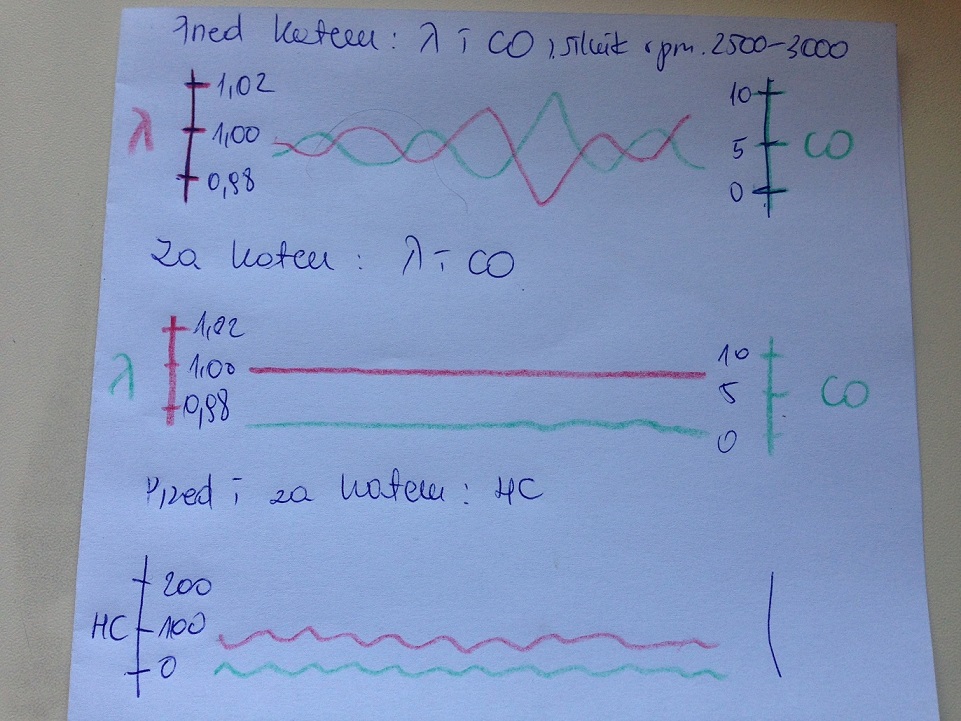 Przed katem: λ i CO, silnik rpm. 2500-3000
1,02
1,00
0,98
λ
10
5
0
CO
Za katem: λ i CO
1,02
1,00
0,98
λ
10
5
0
CO
Przed i za katem: HC
200
100
0
HC